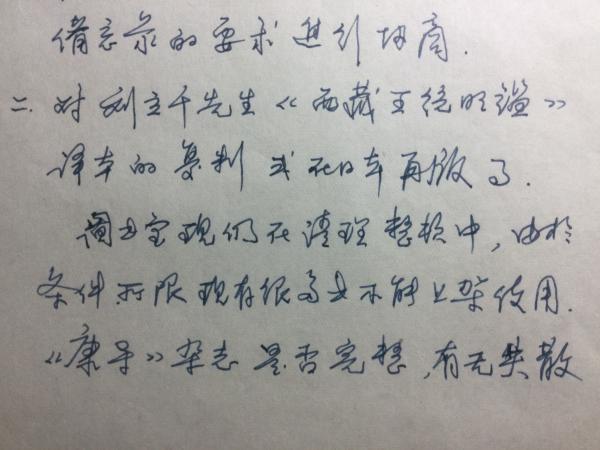 备忘录的要求进行协商.
二.对刘立千先生《西藏王统明鉴》
译本的复制 或在日本再版了.
图书室现仍在清理整校中,由於
条件所限现存很多书不能上架使用.
《康导》杂志是否完整,有无失散